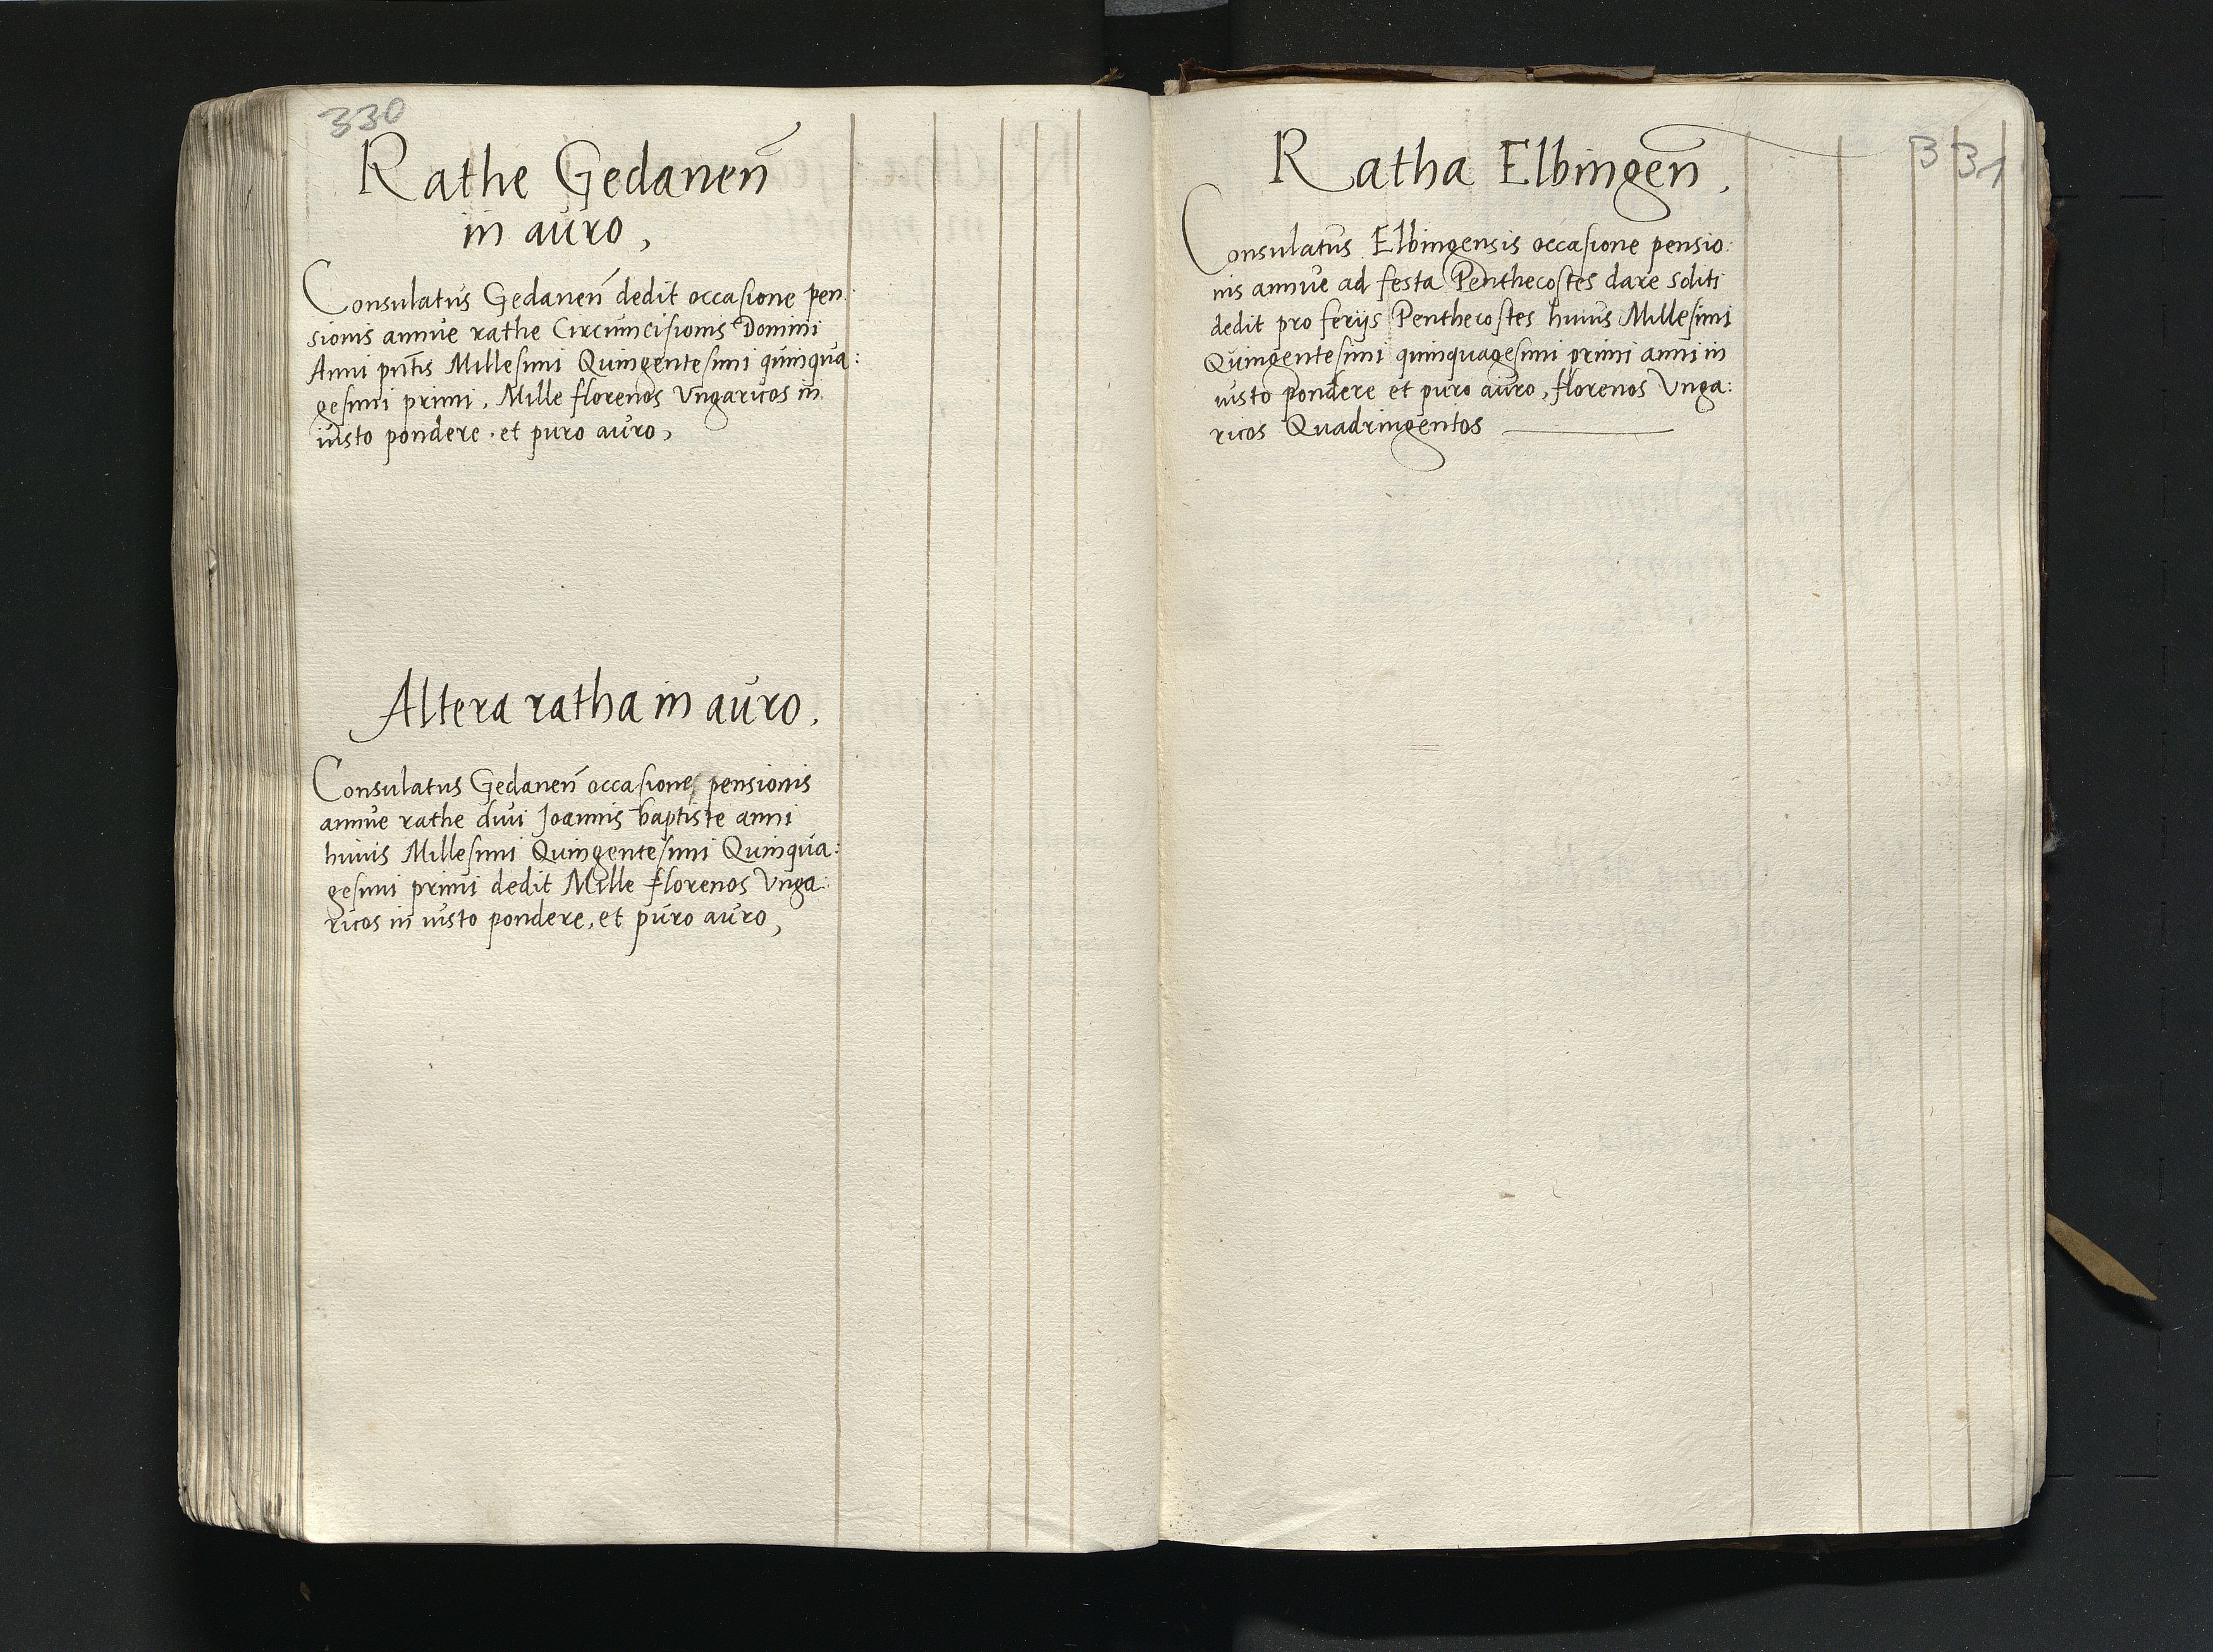 330
Rathe Gedanen̄
in auro,
Consulatus Gedanen̄ dedit occasione pen:
sionis annue rathe Circumcisionis Domini
Anni pñtis Millesimi Quingentesimi quinqua:
gesimi primi, Mille florenos Vngaricos in
iusto pondere, et puro auro,
Altera ratha in auro.
Consulatus Gedanen̄ occasione pensionis
annue rathe divi Joannis baptiste anni
huius Millesimi Quingentesimi Quinqua:
gesimi primi dedit Mille florenos Vnga:
ricos in iusto pondere, et puro auro,
331
Ratha Elbingen̄.
Consulatus Elbingensis occasione pensio:
nis annue ad festa Penthecostes dare soliti
dedit pro ferijs Penthecostes huius Millesimi
Quingentesimi quinquagesimi primi anni in
iusto pondere et puro auro, florenos Vnga:
ricos Quadringentos